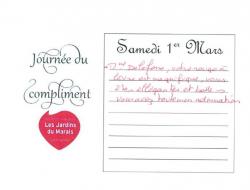 Journée du
compliment
Les Jardins
du Marais
Samedi 1er Mars
Mme Delafone, votre rouge à
lèvre est magnifique, vous
êtes élégante et belle
vous avez